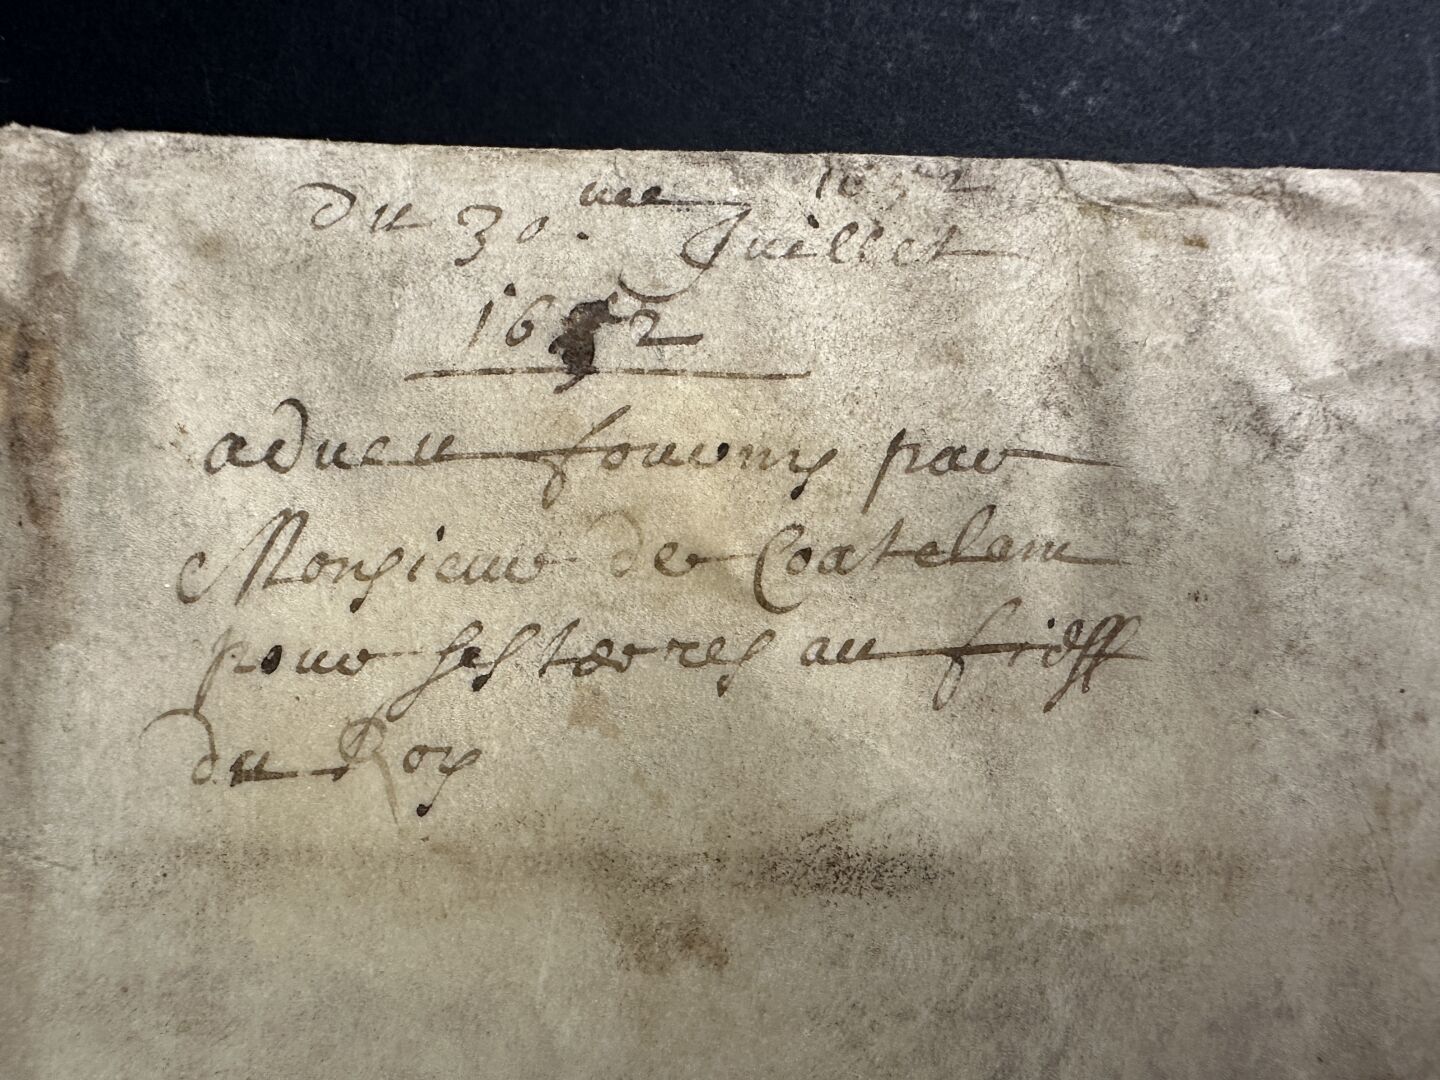 1652
Du 30.me Juillet
1652
adueu fourny par
Monsieur de Coatelam
pour ses terres au fieff
du Roy